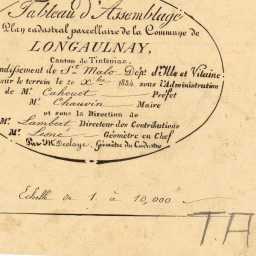 Tableau d'Assemblage
Plan cadastral parcellaire de la Commune de
LONGAULNAY,
Canton de Tinténiac,
ndissement de St. Malo Dépt. d'Ille et Vilaine
sur le terrain le 20 Xbre 1834 sous l'Administration
de Mr. Cahouet Préfet
Mr. Chauvin Maire
et sous la Direction de
Mr. Lambert Directeur des Contributions
Mr. Lesné Géomètre en Chef
Par Mr. Deolaye, Géomètre du Cadastre
Echelle de 1 à 10,000
T.A